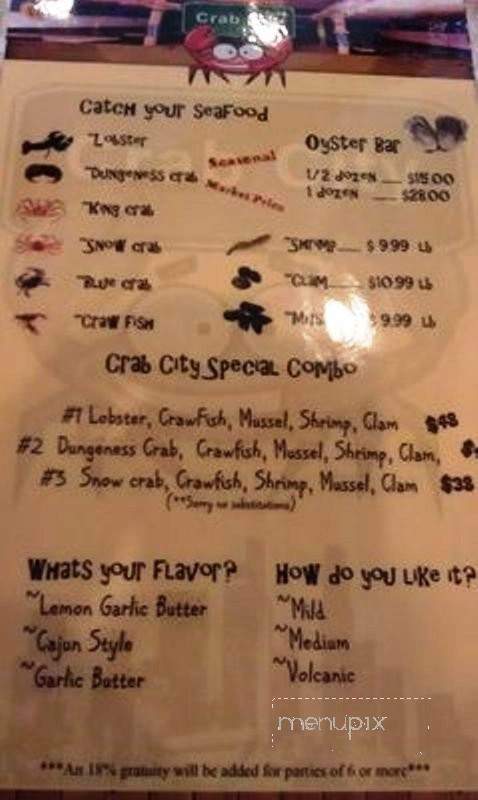 Crab
Catch your Seafood
~Lobster
~Dungeness crab
~King crab
~Snow crab
~Blue crab
~Craw Fish
Seasonal
Market Price
Oyster Bar
1/2 dozen __ $15.00
1 dozen __ $28.00
~Shrimp__ $ 9.99 Lb
~Clam__ $10.99 Lb
$ 9.99 Lb
Crab City Special Combo
#1 Lobster, CrawFish, Mussel, Shrimp, Clam $48
#2 Dungeness Crab, Crawfish, Mussel, Shrimp, Clam,
#3 Snow crab, Crawfish, Shrimp, Mussel, Clam $38
(**Sorry no substitutions)
Whats your Flavor?
~Lemon Garlic Butter
~Cajun Style
~Garlic Butter
How do you Like it?
~Mild
~Medium
~Volcanic
menupix
***An 18% gratuity will be added for parties of 6 or more***